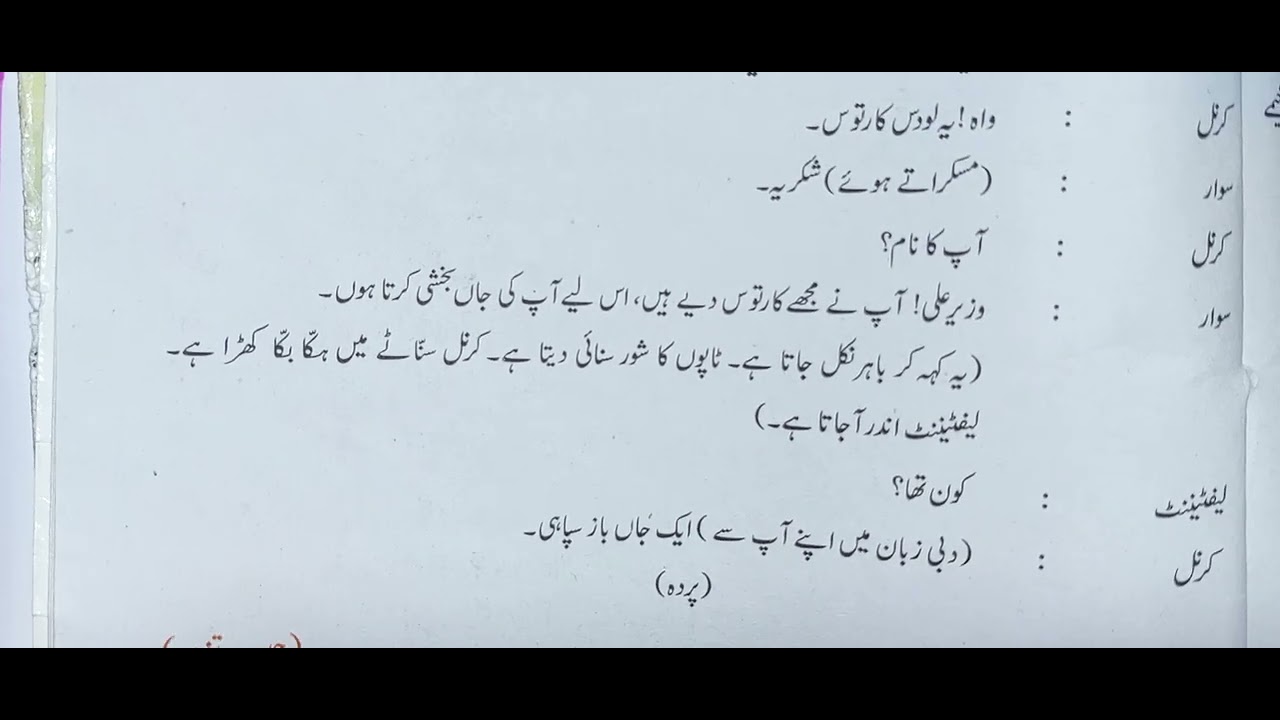 کرنل : واہ! یہ لو دس کارتوس۔
سوار : (مسکراتے ہوئے) شکریہ۔
کرنل : آپ کا نام؟
سوار : وزیر علی! آپ نے مجھے کارتوس دیے ہیں، اس لیے آپ کی جاں بخشی کرتا ہوں۔
(یہ کہہ کر باہر نکل جاتا ہے۔ ٹاپوں کا شور سنائی دیتا ہے۔ کرنل سنّاٹے میں ہکّا بکّا کھڑا ہے۔
لیفٹیننٹ اندر آجاتا ہے۔)
لیفٹیننٹ : کون تھا؟
کرنل : (دبی زبان میں اپنے آپ سے) ایک جاں باز سپاہی۔
(پردہ)